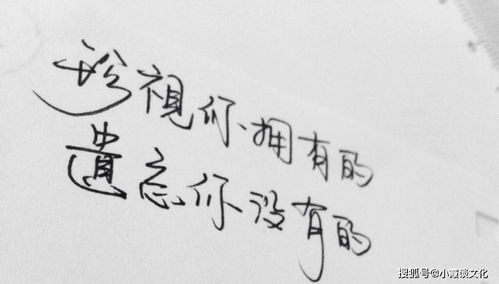 珍視你拥有的
遺忘你没有的
搜狐号@小霞谈文化